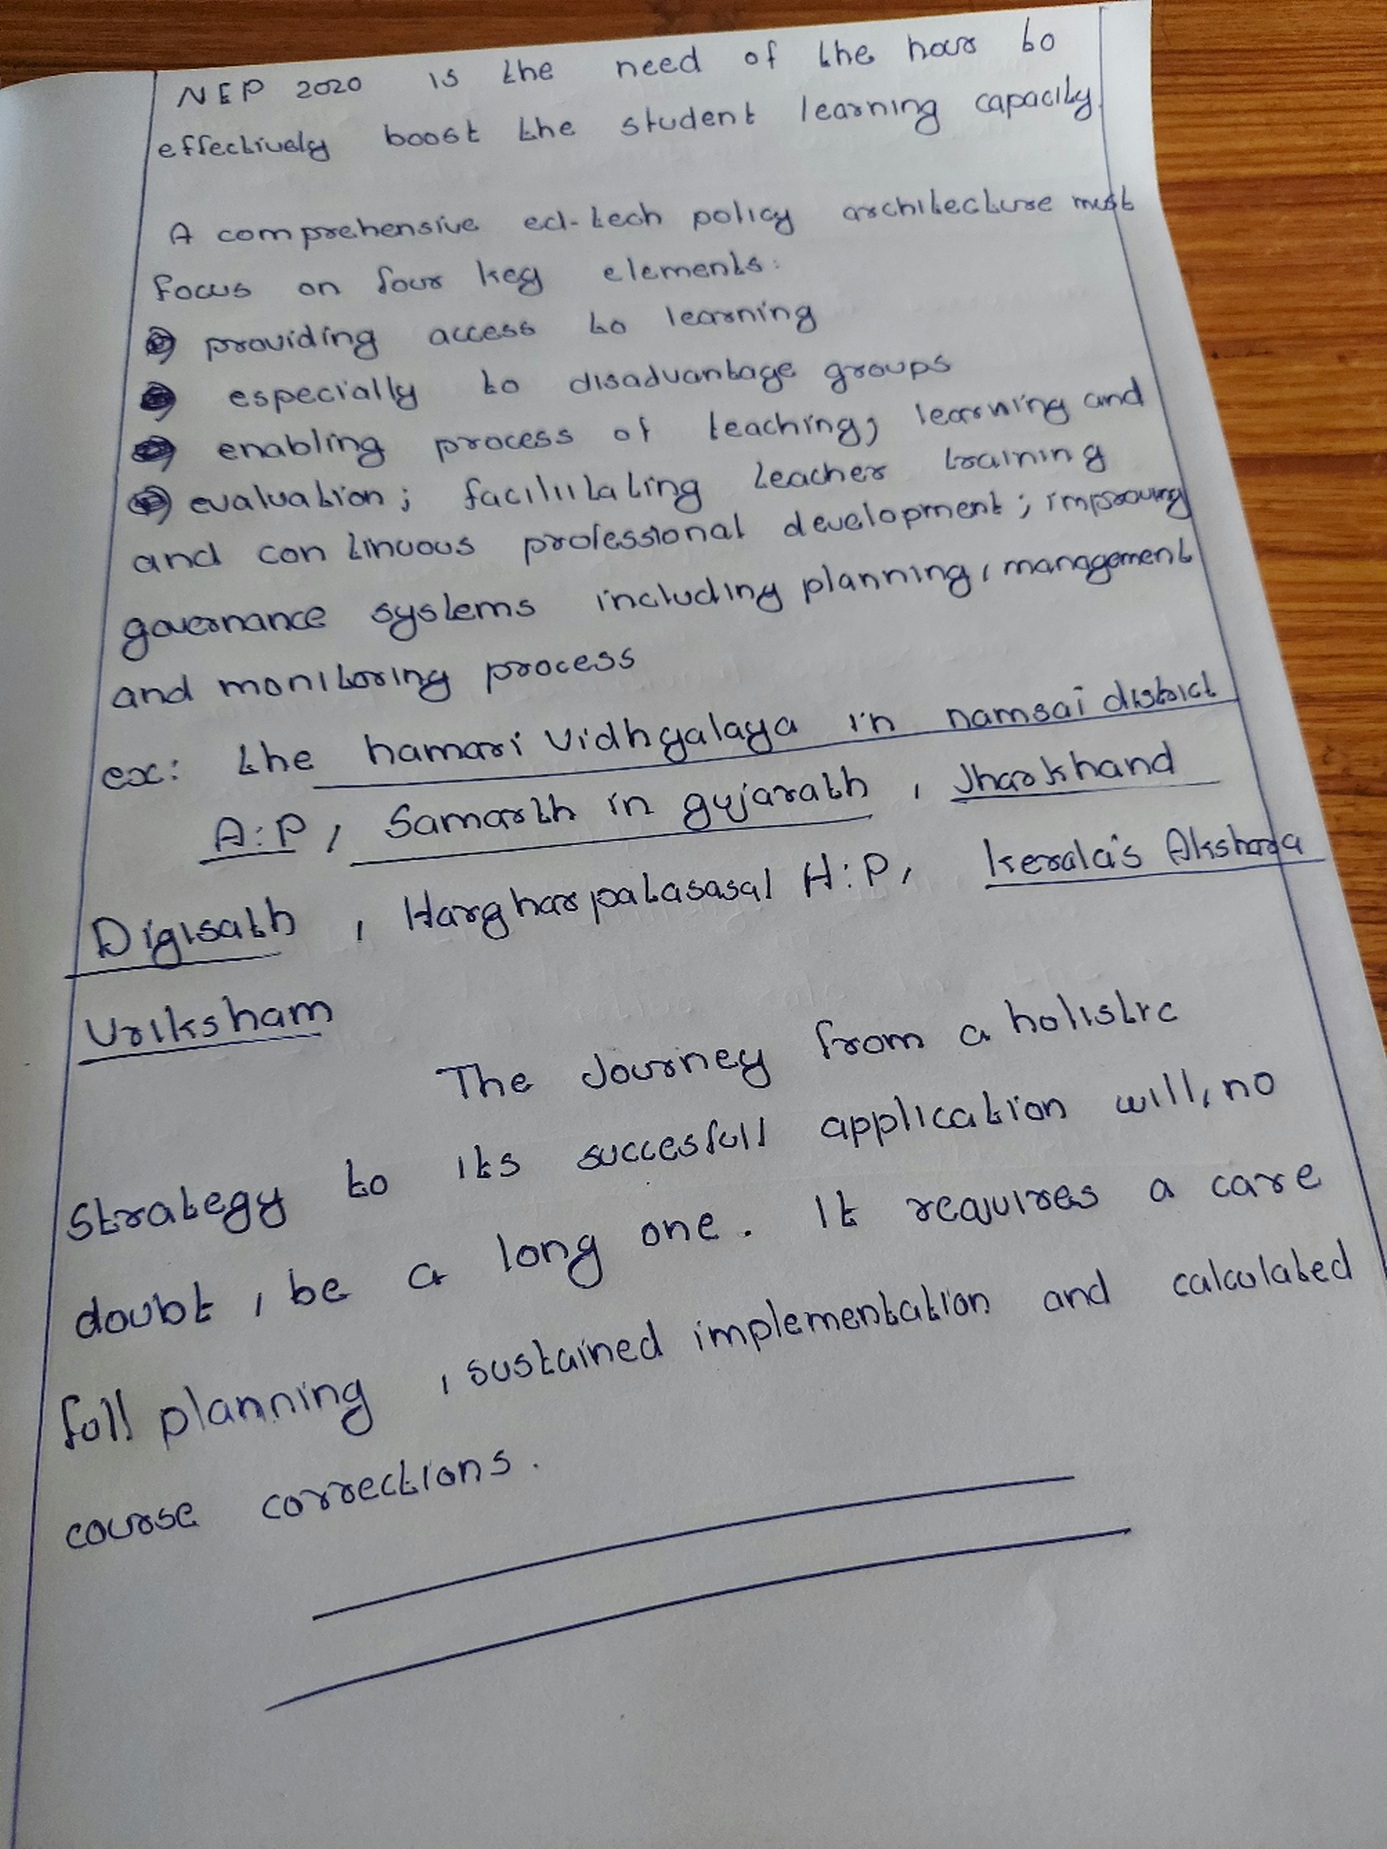 NEP 2020 is the need of the hour to
effectively boost the student learning capacity.
A comprehensive ed-tech policy architecture must
focus on four key elements:
providing access to learning
especially to disadvantage groups
enabling process of teaching, learning and
evaluation; faciliitating teacher training
and continuous professional development; improving
governance systems including planning, management
and monitoring process
ex: the hamari Vidhyalaya in namsai district
A.P, Samarth in gujarath, Jharkhand
Digisath, Hargharpatasasal H.P, Kerala's Akshara
Vriksham
The Journey from a holistic
Strategy to its succesfull application will, no
doubt, be a long one. It requires a care
full planning, sustained implementation and calculated
course corrections.